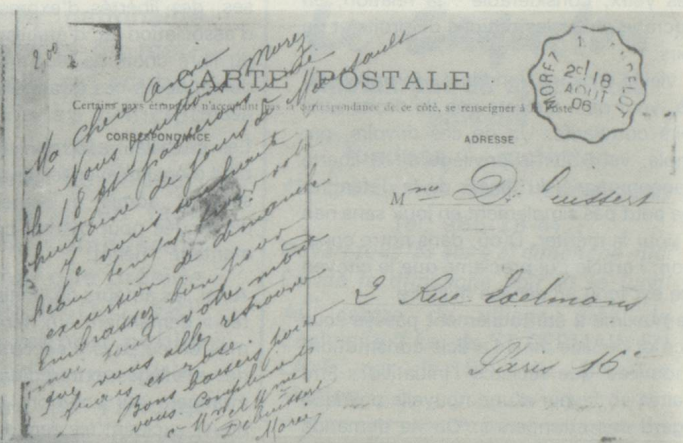 2,00
CARTE POSTALE
Certains pays étrangers n'acceptant pas la correspondance de ce côté, se renseigner à la Poste.
CORRESPONDANCE
ADRESSE
MOREZ
2E 18
AOUT
06
Ma chère amie
Nous quittons Morez
le 18 et passerons une
huitaine de jours à
Je vous souhaite
beau temps pour votre
excursion de demande
Embrassez bien pour
moi tout votre monde
que vous allez retrouver
frais et rose.
Bons baisers pour
vous. Compliments
Morez
Mme D.
2 Rue Exelmans
Paris 16e